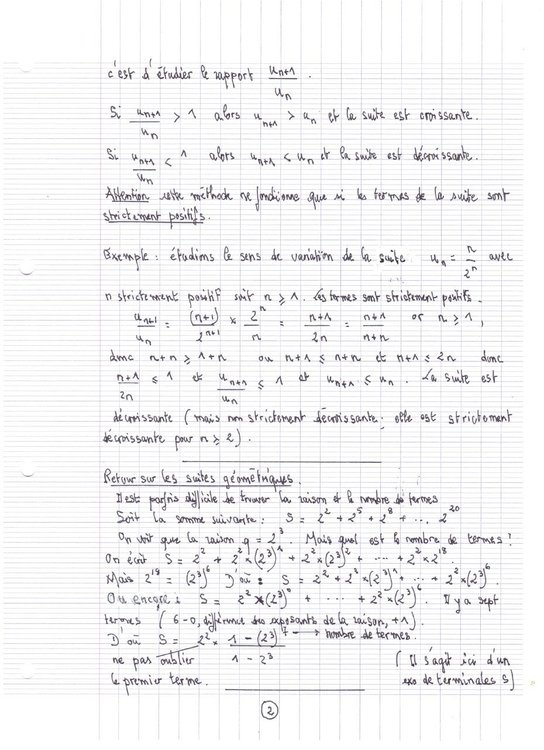 c'est d'étudier le rapport u_{n+1}/u_n .
Si u_{n+1}/u_n > 1 alors u_{n+1} > u_n et la suite est croissante.
Si u_{n+1}/u_n < 1 alors u_{n+1} < u_n et la suite est décroissante.
Attention cette méthode ne fonctionne que si les termes de la suite sont
strictement positifs.
Exemple : étudions le sens de variation de la suite u_n = n/2^n avec
n strictement positif soit n ⩾ 1. Les termes sont strictement positifs.
u_{n+1}/u_n = (n+1)/2^{n+1} × 2^n/n = n+1/2n = n+1/n+n or n ⩾ 1,
donc n+n ⩾ 1+n ou n+1 ⩽ n+n et n+1 ⩽ 2n donc
n+1/2n ⩽ 1 et u_{n+1}/u_n ⩽ 1 et u_{n+1} ⩽ u_n . La suite est
décroissante (mais non strictement décroissante : elle est strictement
décroissante pour n ⩾ 2).
Retour sur les suites géométriques.
Il est parfois difficile de trouver la raison et le nombre de termes
Soit la somme suivante : S = 2^2 + 2^5 + 2^8 + ... 2^20
On voit que la raison q = 2^3. Mais quel est le nombre de termes ?
On écrit S = 2^2 + 2^2 × (2^3)^1 + 2^2 × (2^3)^2 + ... + 2^2 × 2^18.
Mais 2^18 = (2^3)^6 D'où : S = 2^2 + 2^2 × (2^3)^1 + ... + 2^2 × (2^3)^6.
Ou encore : S = 2^2 × (2^3)^0 + ... + 2^2 × (2^3)^6. Il y a sept
termes (6-0, différence des exposants de la raison, +1).
D'où S = 2^2 × 1 - (2^3)^7/1 - 2^3 → nombre de termes.
ne pas oublier (Il s'agit ici d'un
le premier terme. exo de terminales S)
2